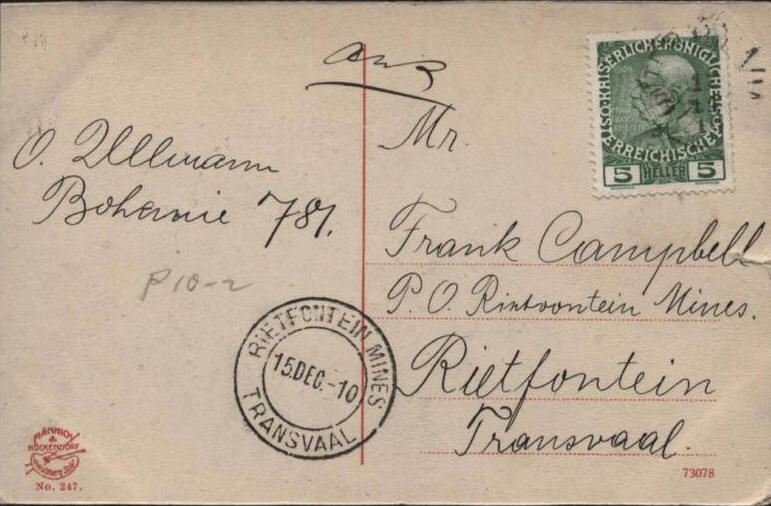 O. Ullmann
Bohemie 781.
P 10-2
Mr.
Frank Campbell
P. O. Rietvontein Mines.
Rietfontein
Transvaal.
KAISERLICHE KÖNIGLICHE ÖSTERREICHISCHE POST
5 HELLER 5
RIETFONTEIN MINES
15.DEC.-10
TRANSVAAL
No. 247.
73078